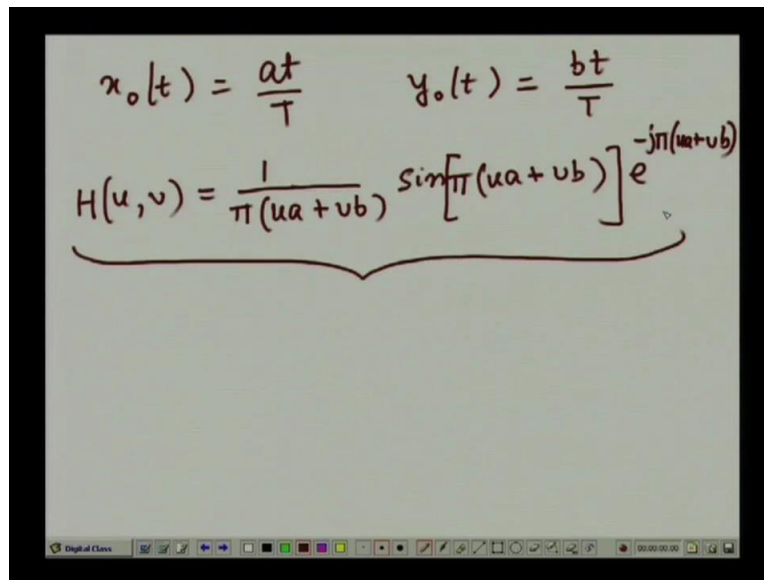 x₀(t) = at/T    y₀(t) = bt/T
H(u,v) = 1/π(ua+vb) sin[π(ua+vb)] e^-jπ(ua+vb)
Digital Class 00:00:00:00